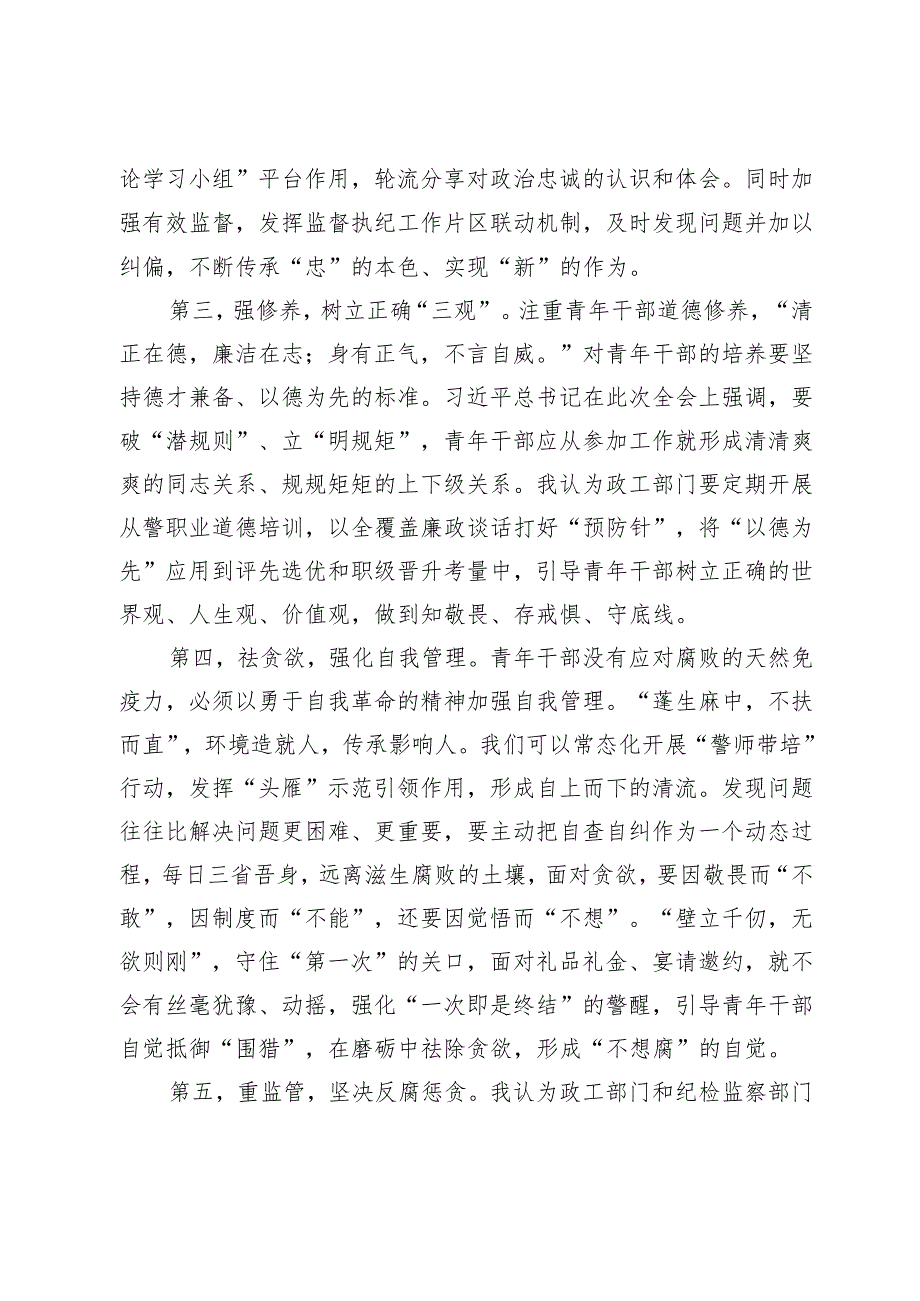 论学习小组”平台作用，轮流分享对政治忠诚的认识和体会。同时加
强有效监督，发挥监督执纪工作片区联动机制，及时发现问题并加以
纠偏，不断传承“忠”的本色、实现“新”的作为。
第三，强修养，树立正确“三观”。注重青年干部道德修养，“清
正在德，廉洁在志；身有正气，不言自威。”对青年干部的培养要坚
持德才兼备、以德为先的标准。习近平总书记在此次全会上强调，要
破“潜规则”、立“明规矩”，青年干部应从参加工作就形成清清爽
爽的同志关系、规规矩矩的上下级关系。我认为政工部门要定期开展
从警职业道德培训，以全覆盖廉政谈话打好“预防针”，将“以德为
先”应用到评先选优和职级晋升考量中，引导青年干部树立正确的世
界观、人生观、价值观，做到知敬畏、存戒惧、守底线。
第四，祛贪欲，强化自我管理。青年干部没有应对腐败的天然免
疫力，必须以勇于自我革命的精神加强自我管理。“蓬生麻中，不扶
而直”，环境造就人，传承影响人。我们可以常态化开展“警师带培”
行动，发挥“头雁”示范引领作用，形成自上而下的清流。发现问题
往往比解决问题更困难、更重要，要主动把自查自纠作为一个动态过
程，每日三省吾身，远离滋生腐败的土壤，面对贪欲，要因敬畏而“不
敢”，因制度而“不能”，还要因觉悟而“不想”。“壁立千仞，无
欲则刚”，守住“第一次”的关口，面对礼品礼金、宴请邀约，就不
会有丝毫犹豫、动摇，强化“一次即是终结”的警醒，引导青年干部
自觉抵御“围猎”，在磨砺中祛除贪欲，形成“不想腐”的自觉。
第五，重监管，坚决反腐惩贪。我认为政工部门和纪检监察部门